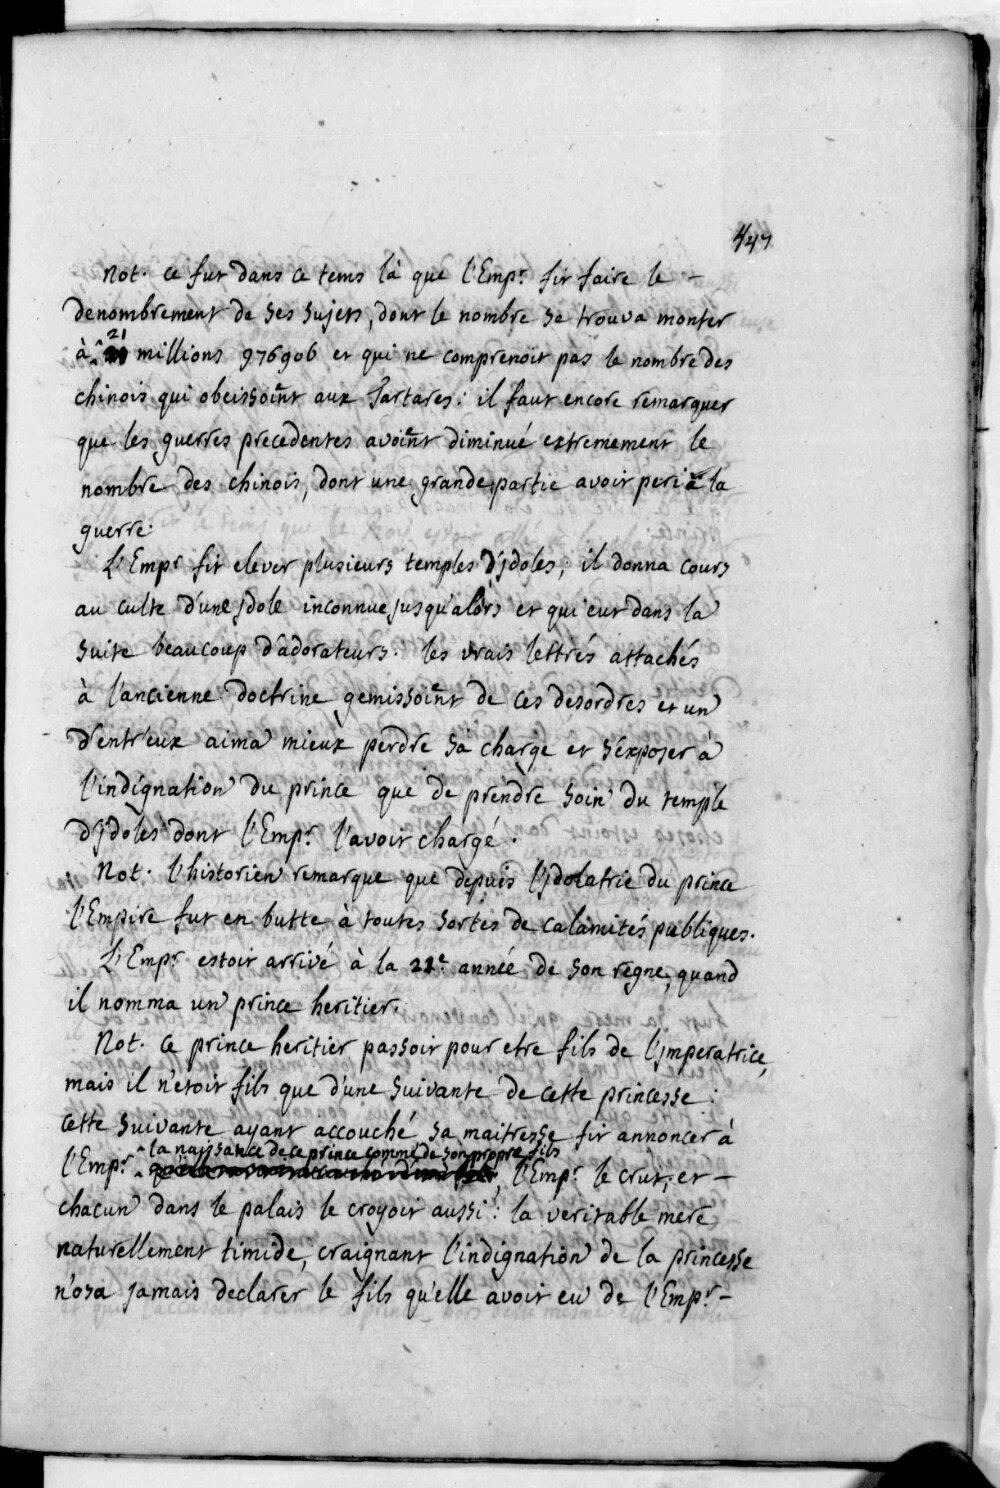 447
Not. ce fut dans ce tems là que l'Empr. fit faire le –
denombrement de ses sujets, dont le nombre se trouva monter
à 21 millions 976906 et qui ne comprenoit pas le nombre des
chinois qui obeissoint aux Tartares: il faut encore remarquer
que les guerres precedentes avoint diminué extremement le
nombre des chinois, dont une grande partie avoit peri à la
guerre.
L'Empr fit elever plusieurs temples d'jdoles; il donna cours
au culte d'une jdole inconnue jusqu'alors et qui eut dans la
suite beaucoup d'adorateurs. les vrais lettrés attachés
à l'ancienne doctrine gemissoint de ces desordres et un
d'entr'eux aima mieux perdre sa charge et s'exposer à
l'indignation du prince que de prendre soin du temple
d'jdoles dont l'Empr. l'avoit chargé.
Not. l'historien remarque que depuis l'jdolatrie du prince
l'Empire fut en butte à toutes sortes de calamités publiques.
L'Empr. estoit arrivé à la 21e. année de son regne, quand
il nomma un prince heritier.
Not. ce prince heritier passoit pour etre fils de l'jmperatrice,
mais il n'etoit fils que d'une suivante de cette princesse:
cette suivante ayant accouché sa maitresse fit annoncer à
la naissance de ce prince comme de son propre fils
l'Empr. , l'Empr. le crut, et –
chacun dans le palais le croyoit aussi: la veritable mere
naturellement timide, craignant l'indignation de la princesse
n'osa jamais declarer le fils qu'elle avoit eu de l'Empr. –